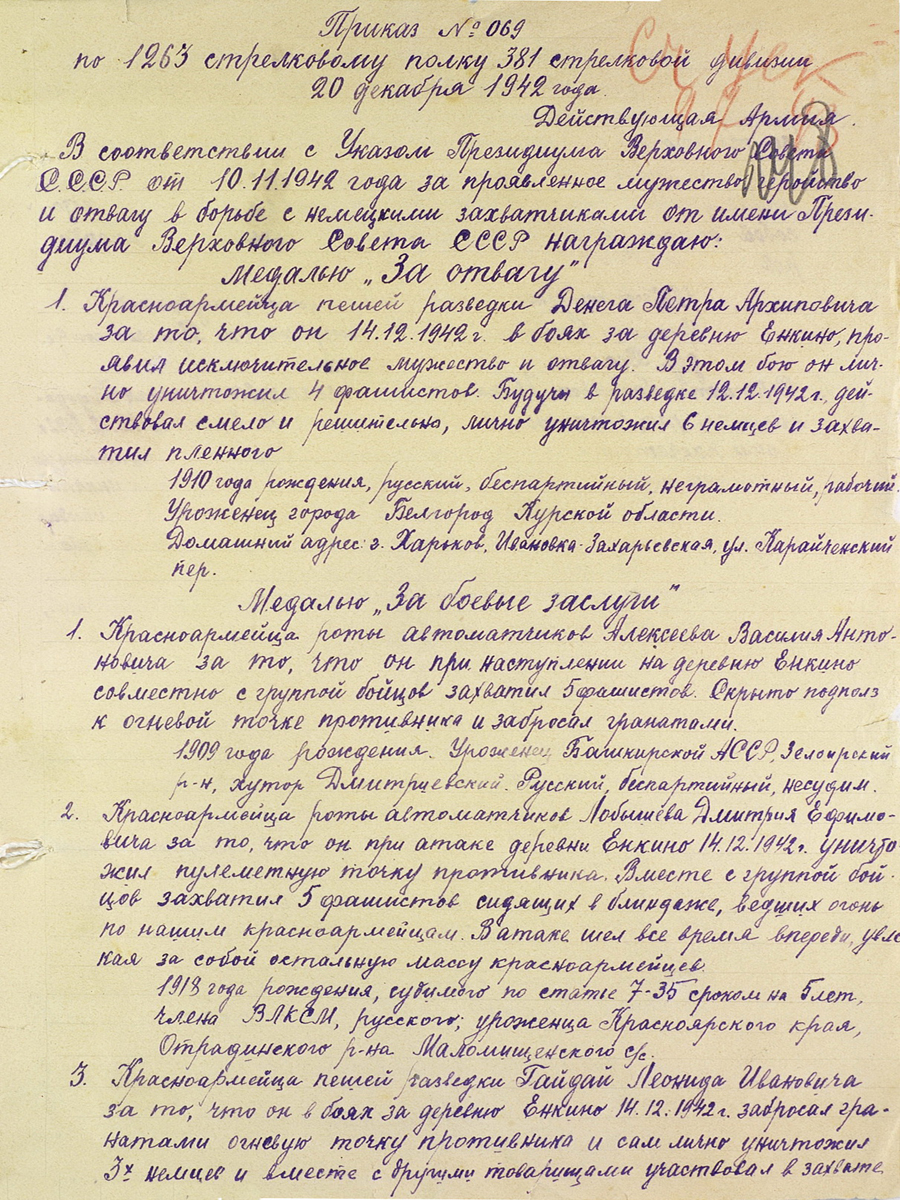 Приказ № 069
по 1263 стрелковому полку 381 стрелковой дивизии
20 декабря 1942 года.
Действующая Армия.
В соответствии с Указом Президиума Верховного Совета
С.С.С.Р. от 10.11.1942 года за проявленное мужество, геройство
и отвагу в борьбе с немецкими захватчиками от имени Прези-
диума Верховного Совета СССР награждаю:
Медалью „За отвагу"
1. Красноармейца пешей разведки Денега Петра Архиповича
за то, что он 14.12.1942г. в боях за деревню Енкино, про-
явил исключительное мужество и отвагу. В этом бою он лич-
но уничтожил 4 фашистов. Будучи в разведке 12.12.1942г., дей-
ствовал смело и решительно, лично уничтожил 6 немцев и захва-
тил пленного
1910 года рождения, русский, беспартийный, неграмотный, рабочий.
Уроженец города Белгород Курской области.
Домашний адрес: г. Харьков, Ивановка-Захарьевская, ул. Карайченский
пер.
Медалью „За боевые заслуги"
1. Красноармейца роты автоматчиков Алексеева Василия Анто-
новича за то, что он при наступлении на деревню Енкино
совместно с группой бойцов захватил 5 фашистов. Скрыто подполз
к огневой точке противника и забросал гранатами.
1909 года рождения. Уроженец Башкирской АССР, Зелоирский
р-н, хутор Дмитриевский. Русский, беспартийный, несудим.
2. Красноармейца роты автоматчиков Лобышева Дмитрия Ефимо-
вича за то, что он при атаке деревни Енкино 14.12.1942г. уничто-
жил пулеметную точку противника. Вместе с группой бой-
цов захватил 5 фашистов сидящих в блиндаже, ведших огонь
по нашим красноармейцам. В атаке шел все время впереди, увле
кая за собой остальную массу красноармейцев.
1918 года рождения, судимого по статье 7-35 сроком на 5 лет,
члена ВЛКСМ, русского, уроженца Красноярского края,
Отрадинского р-на Маломищенского с/с.
3. Красноармейца пешей разведки Гайдай Леонида Ивановича
за то, что он в боях за деревню Енкино 14.12.1942г. забросал гра-
натами огневую точку противника и сам лично уничтожил
3х немцев и вместе с другими товарищами участвовал в захвате